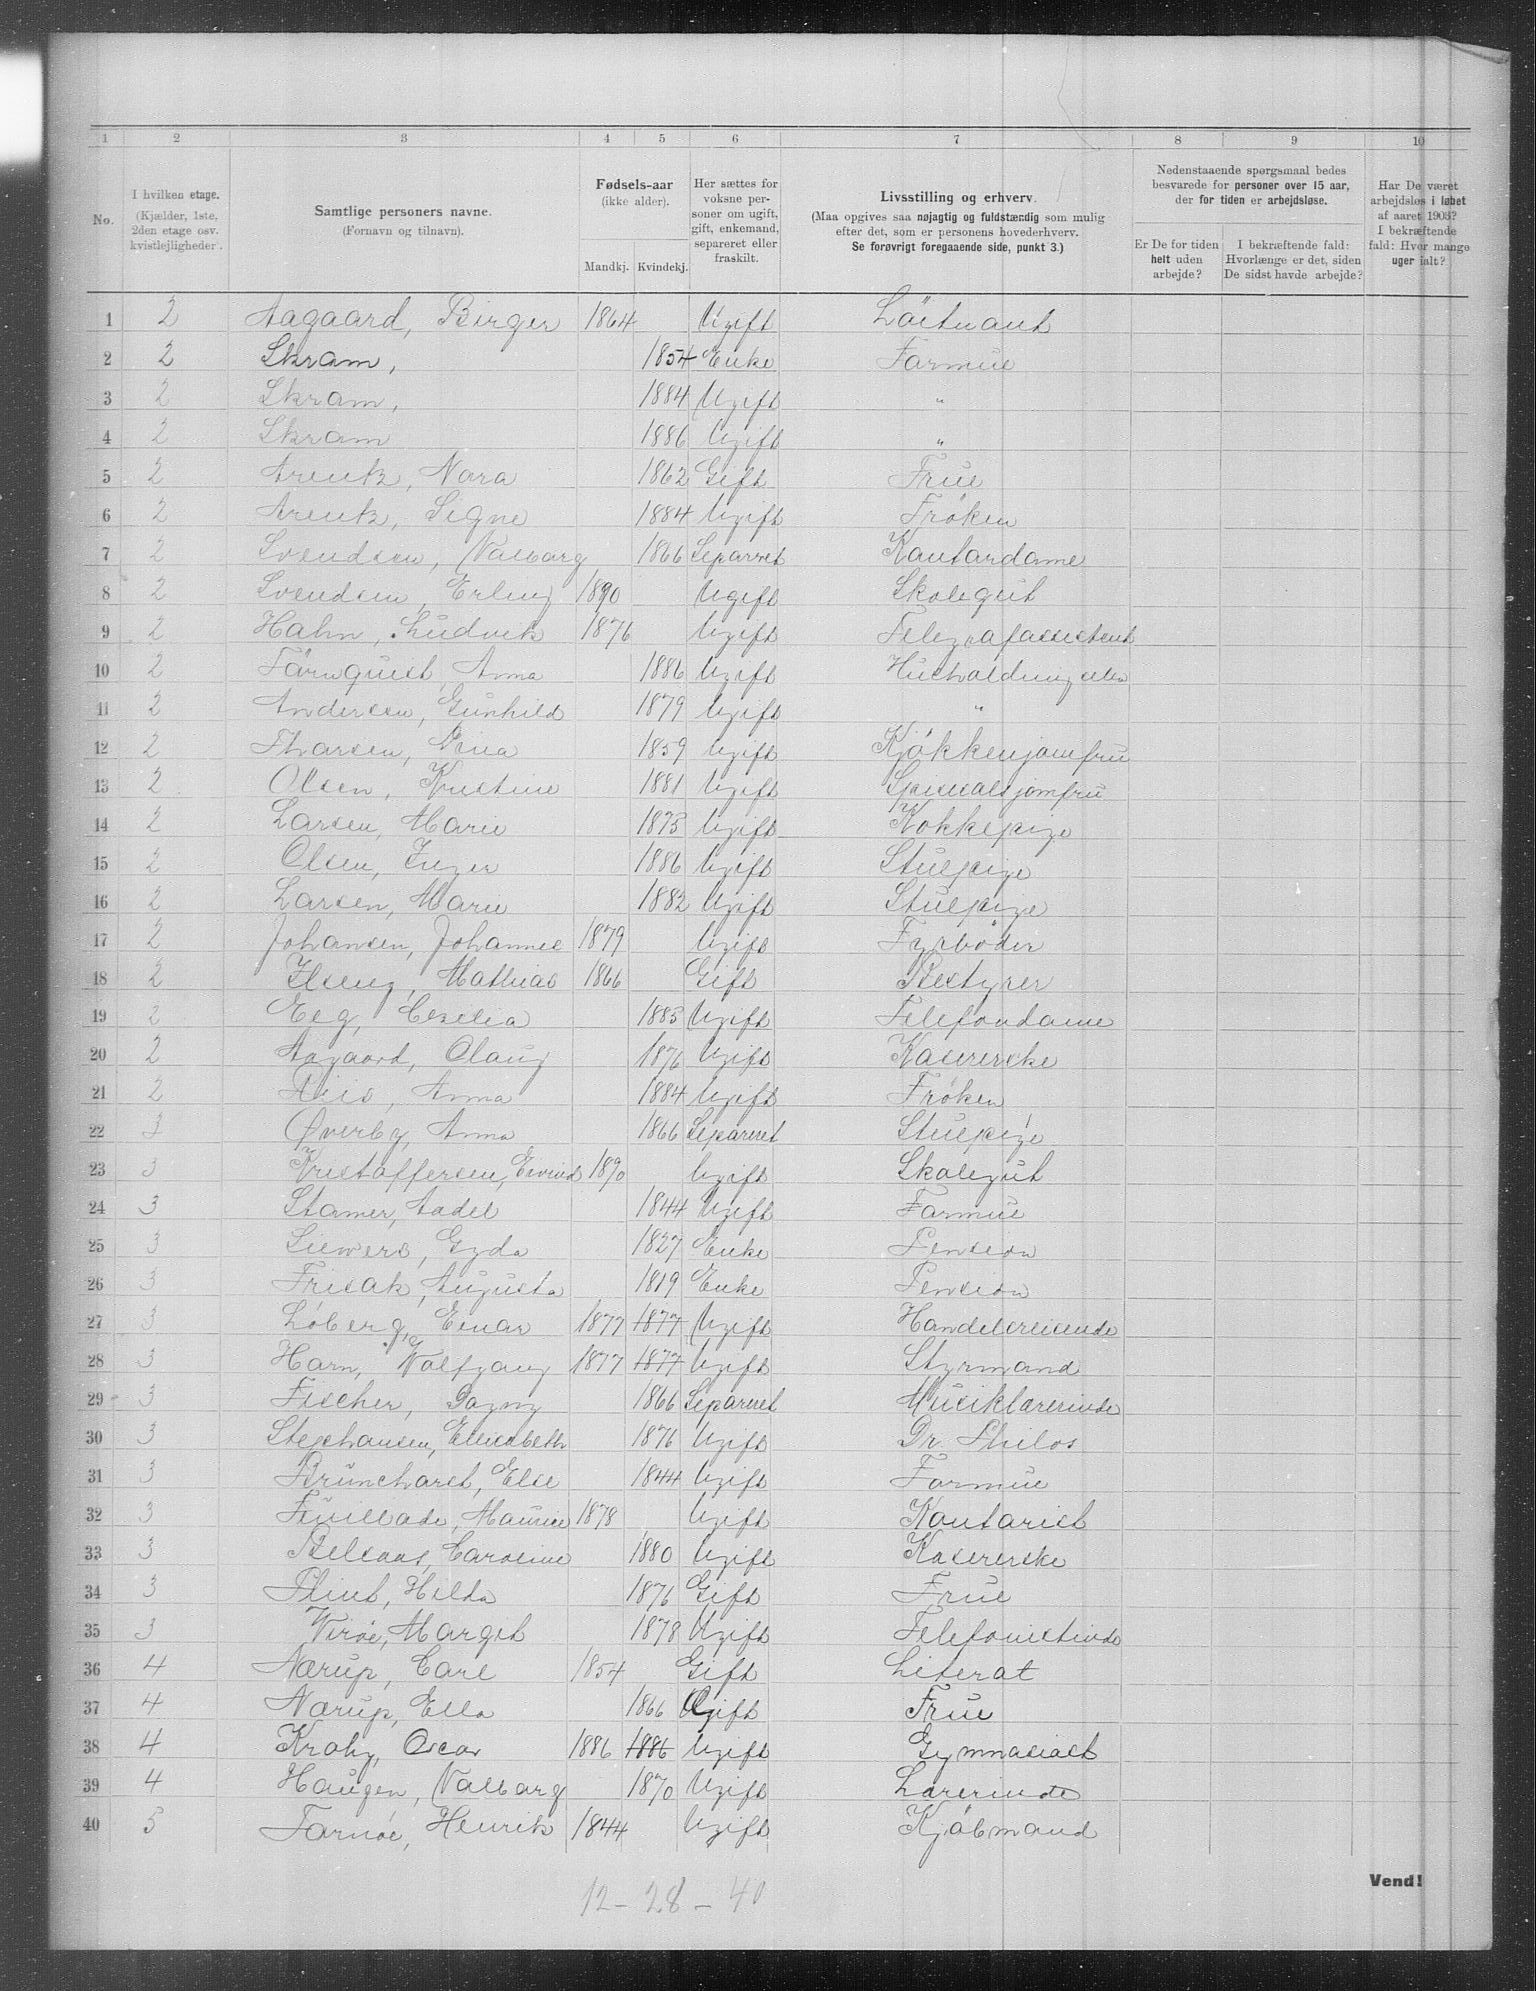 1 2 3 4 5 6 7 8 9 10
No.
I hvilken etage.
(Kjælder, 1ste,
2den etage osv.
kvistlejligheder.
Samtlige personers navne.
(Fornavn og tilnavn).
Fødsels-aar
(ikke alder).
Mandkj. Kvindekj.
Her sættes for
voksne per-
soner om ugift,
gift, enkemand,
separeret eller
fraskilt.
Livsstilling og erhverv.
(Maa opgives saa nøjagtig og fuldstændig som mulig
efter det, som er personens hovederhverv.
Se forøvrigt foregaaende side, punkt 3.)
Nedenstaaende spørgsmaal bedes
besvarede for personer over 15 aar,
der for tiden er arbejdsløse.
Er De for tiden
helt uden
arbejde?
I bekræftende fald:
Hvorlænge er det, siden
De sidst havde arbejde?
Har De været
arbejdsløs i løbet
af aaret 1903?
I bekræftende
fald: Hvor mange
uger ialt?
1 2 Aagaard, Birger 1864 Ugift Löitnant
2 2 Skram, 1854 Enke Formue
3 2 Skram, 1884 Ugift "
4 2 Skram 1886 Ugift "
5 2 Arentz, Nora 1862 Gift Frue
6 2 Arentz, Signe 1884 Ugift Frøken
7 2 Svendsen, Valborg 1866 Separret Kontordame
8 2 Svendsen, Erling 1890 Ugift Skolegut
9 2 Hahn, Ludvik 1876 Ugift Telegrafassistent
10 2 Törnquist, Anna 1886 Ugift Husholdningselev
11 2 Andersen, Gunhild 1879 Ugift "
12 2 Thorsen, Nina 1859 Ugift Kjøkkenjomfru
13 2 Olsen, Kristine 1881 Ugift Spisesalsjomfru
14 2 Larsen, Marie 1875 Ugift Kokkepige
15 2 Olsen, Inger 1886 Ugift Stuepige
16 2 Larsen, Marie 1882 Ugift Stuepige
17 2 Johansen, Johannes 1879 Ugift Fyrböder
18 2 Ilseng, Mathias 1866 Gift Bestyrer
19 2 Eeg, Cecelia 1883 Ugift Telefondame
20 2 Aagaard, Olaug 1876 Ugift Kasererske
21 2 Anna 1884 Ugift Frøken
22 3 Øverby, Anna 1866 Separeret Stuepige
23 3 Kristoffersen, Eivind 1890 Ugift Skolegut
24 3 Stamer, Aadel 1844 Ugift Formue
25 3 Siewers, Gyda 1827 Enke Pension
26 3 Frisak, Augusta 1819 Enke Pension
27 3 Løberg, Einar 1877 1877 Ugift Handelsreisende
28 3 Horn, Wolfgang 1877 1877 Ugift Styrmand
29 3 Fischer, Dagny 1866 Separeret Musiklærerinde
30 3 Stephansen, Elisabeth 1876 Ugift Dr. Philos
31 3 Brunchorst, Else 1844 Ugift Formue
32 3 Feuillade, Maurice 1878 Ugift Kontorist
33 3 Belsaas, Caroline 1880 Ugift Kasererske
34 3 Hilda 1876 Gift Frue
35 3 Virøe, Margit 1878 Ugift Telefonistinde
36 4 Nærup, Carl 1854 Gift Literat
37 4 Nærup, Ella 1866 Gift Frue
38 4 Krohg, Oscar 1886 1886 Ugift Gymnasiast
39 4 Haugen, Valborg 1870 Ugift Lærerinde
40 5 Farnøe, Henrik 1844 Ugift Kjöbmand
12 - 28 - 40
Vend!